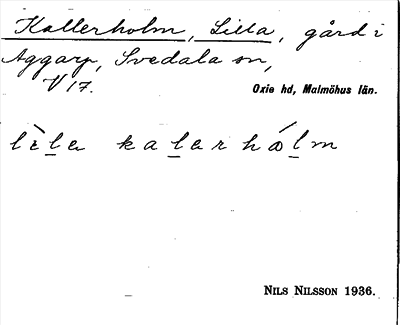 Kallerholm, Lilla, gård i
Aggarp, Svedala sn,
V 17.
Oxie hd, Malmöhus län.
lὲla kalerhólm
NILS NILSSON 1936.